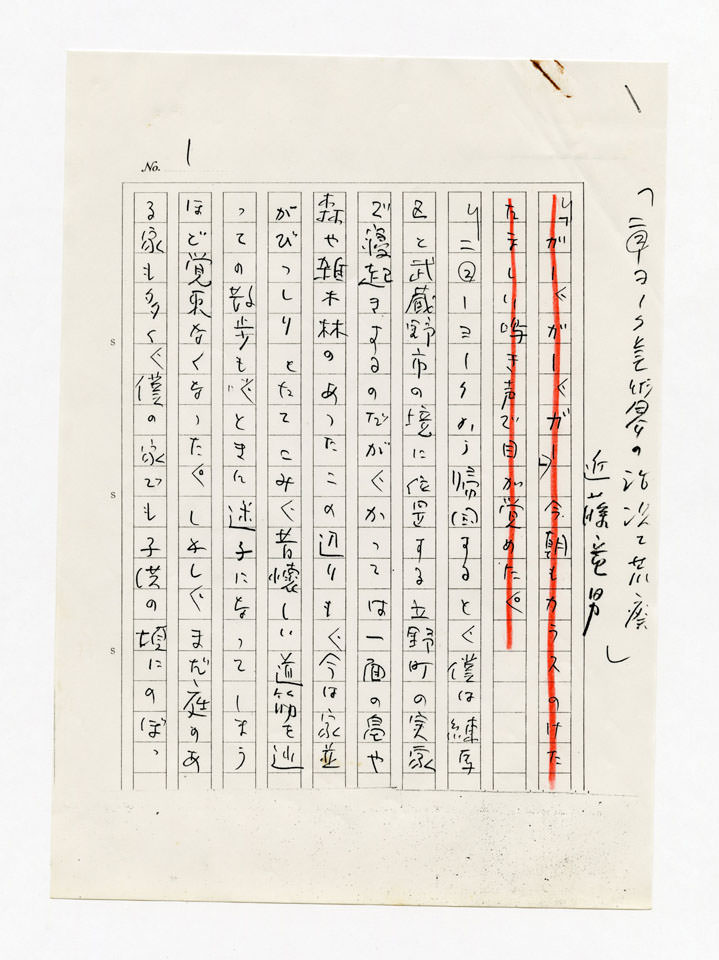 No. 1
「ニューヨーク芸術界の活況と荒廃」
近藤竜男
「ガー、ガー、ガー」今朝もカラスのけた
たましい鳴き声で目が覚めた。
ニューヨークから帰国すると、僕は練馬
区と武蔵野市の境に位置する立野町の実家
で寝起きするのだが、かつては一面の畠や
森や雑木林のあったこの辺りも、今は家並
がびっしりとたてこみ、昔懐しい道筋を辿
っての散歩も、ときに迷子になってしまう
ほど覚束なくなった。しかし、まだ庭のあ
る家も多く、僕の家でも子供の頃にのぼっ
5
5
5